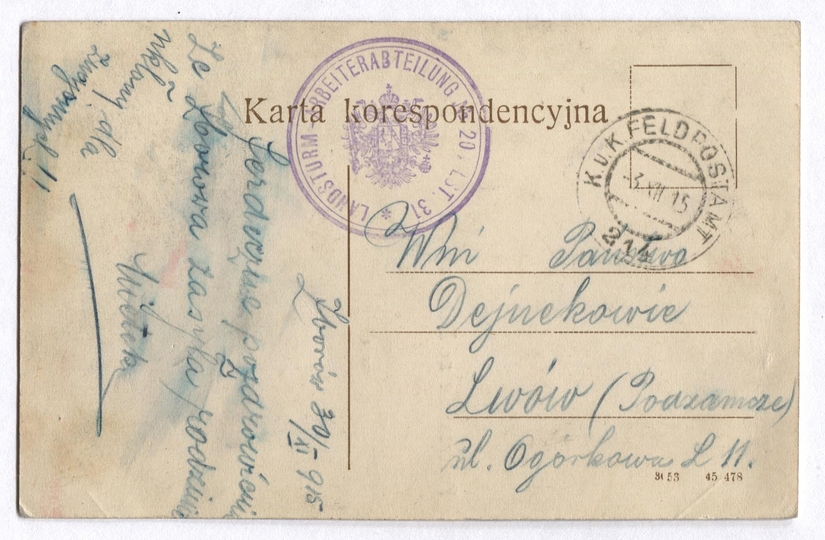 Karta korespondencyjna
LANDSTURM-ARBEITERABTEILUNG № 20, LST. 31 *
K.u.K. FELDPOSTAMT
-3.XII.15
214
Wni Państwo
Dejnekowie
Lwów (Podzamcze)
ul. Ogórkowa L 11.
3653 45 478
Zborów 30/XI 915
Serdeczne pozdrowienia
Ze Zborowa zasyła rodzinie
ukłony dla
znajomych!!
Mietek